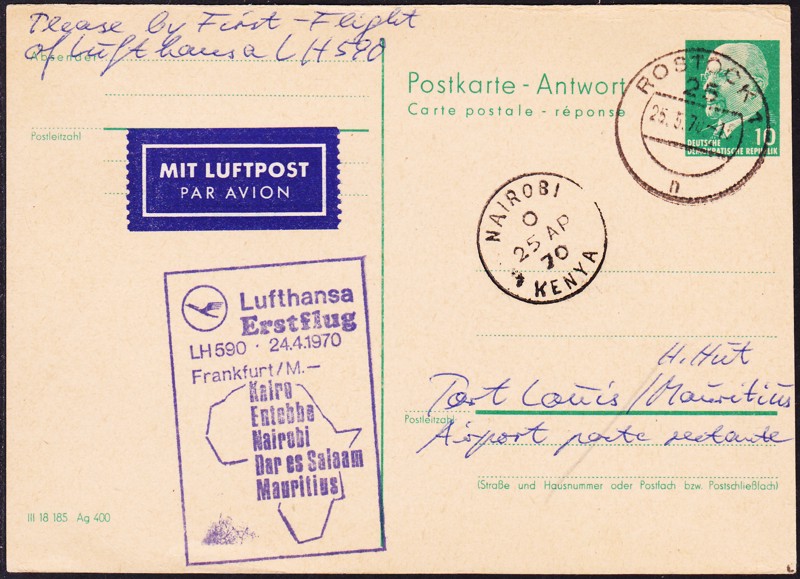 Please by First-Flight
of Lufthansa LH 590
Absender:
Postleitzahl
MIT LUFTPOST
PAR AVION
Postkarte - Antwort
Carte postale - réponse
ROSTOCK 1
25
n
10
DEUTSCHE
DEMOKRATISCHE REPUBLIK
NAIROBI
0
25 AP
70
KENYA
Lufthansa
Erstflug
LH 590 · 24.4.1970
Frankfurt/M.–
Kairo
Entebbe
Nairobi
Dar es Salaam
Mauritius
H. Hut
Port Louis/Mauritius
Postleitzahl
Airport poste restante
(Straße und Hausnummer oder Postfach bzw. Postschließfach)
III 18 185 Ag 400